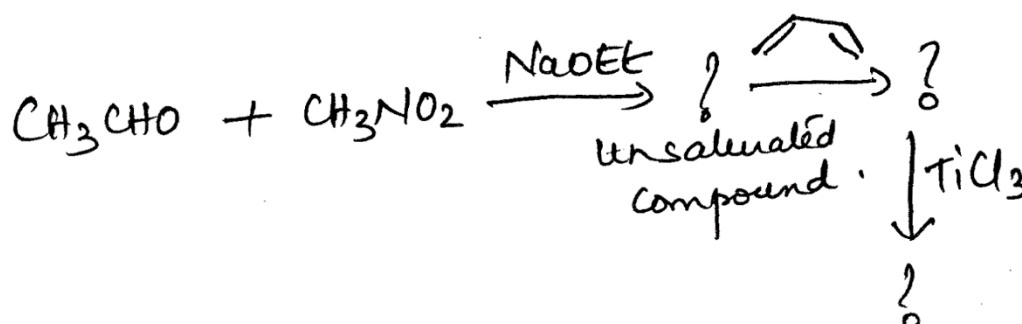 CH3CHO + CH3NO2 NaOEt ? ?
unsaturated
compound.
TiCl3
?